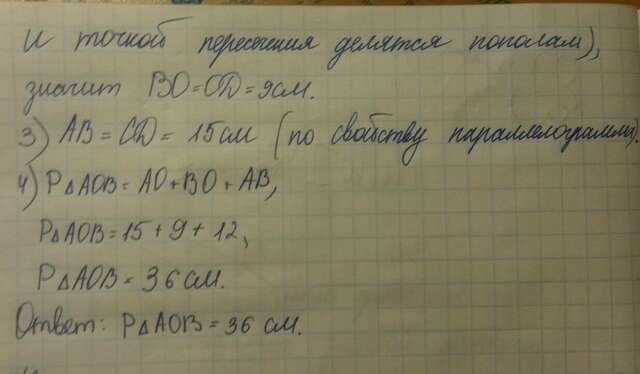 и точкой пересечения делятся пополам),
значит BO=OD=9см.
3) AB=CD=15см (по свойству параллелограмма).
4) P△AOB=AO+BO+AB,
P△AOB=15+9+12,
P△AOB=36см.
Ответ: P△AOB=36 см.